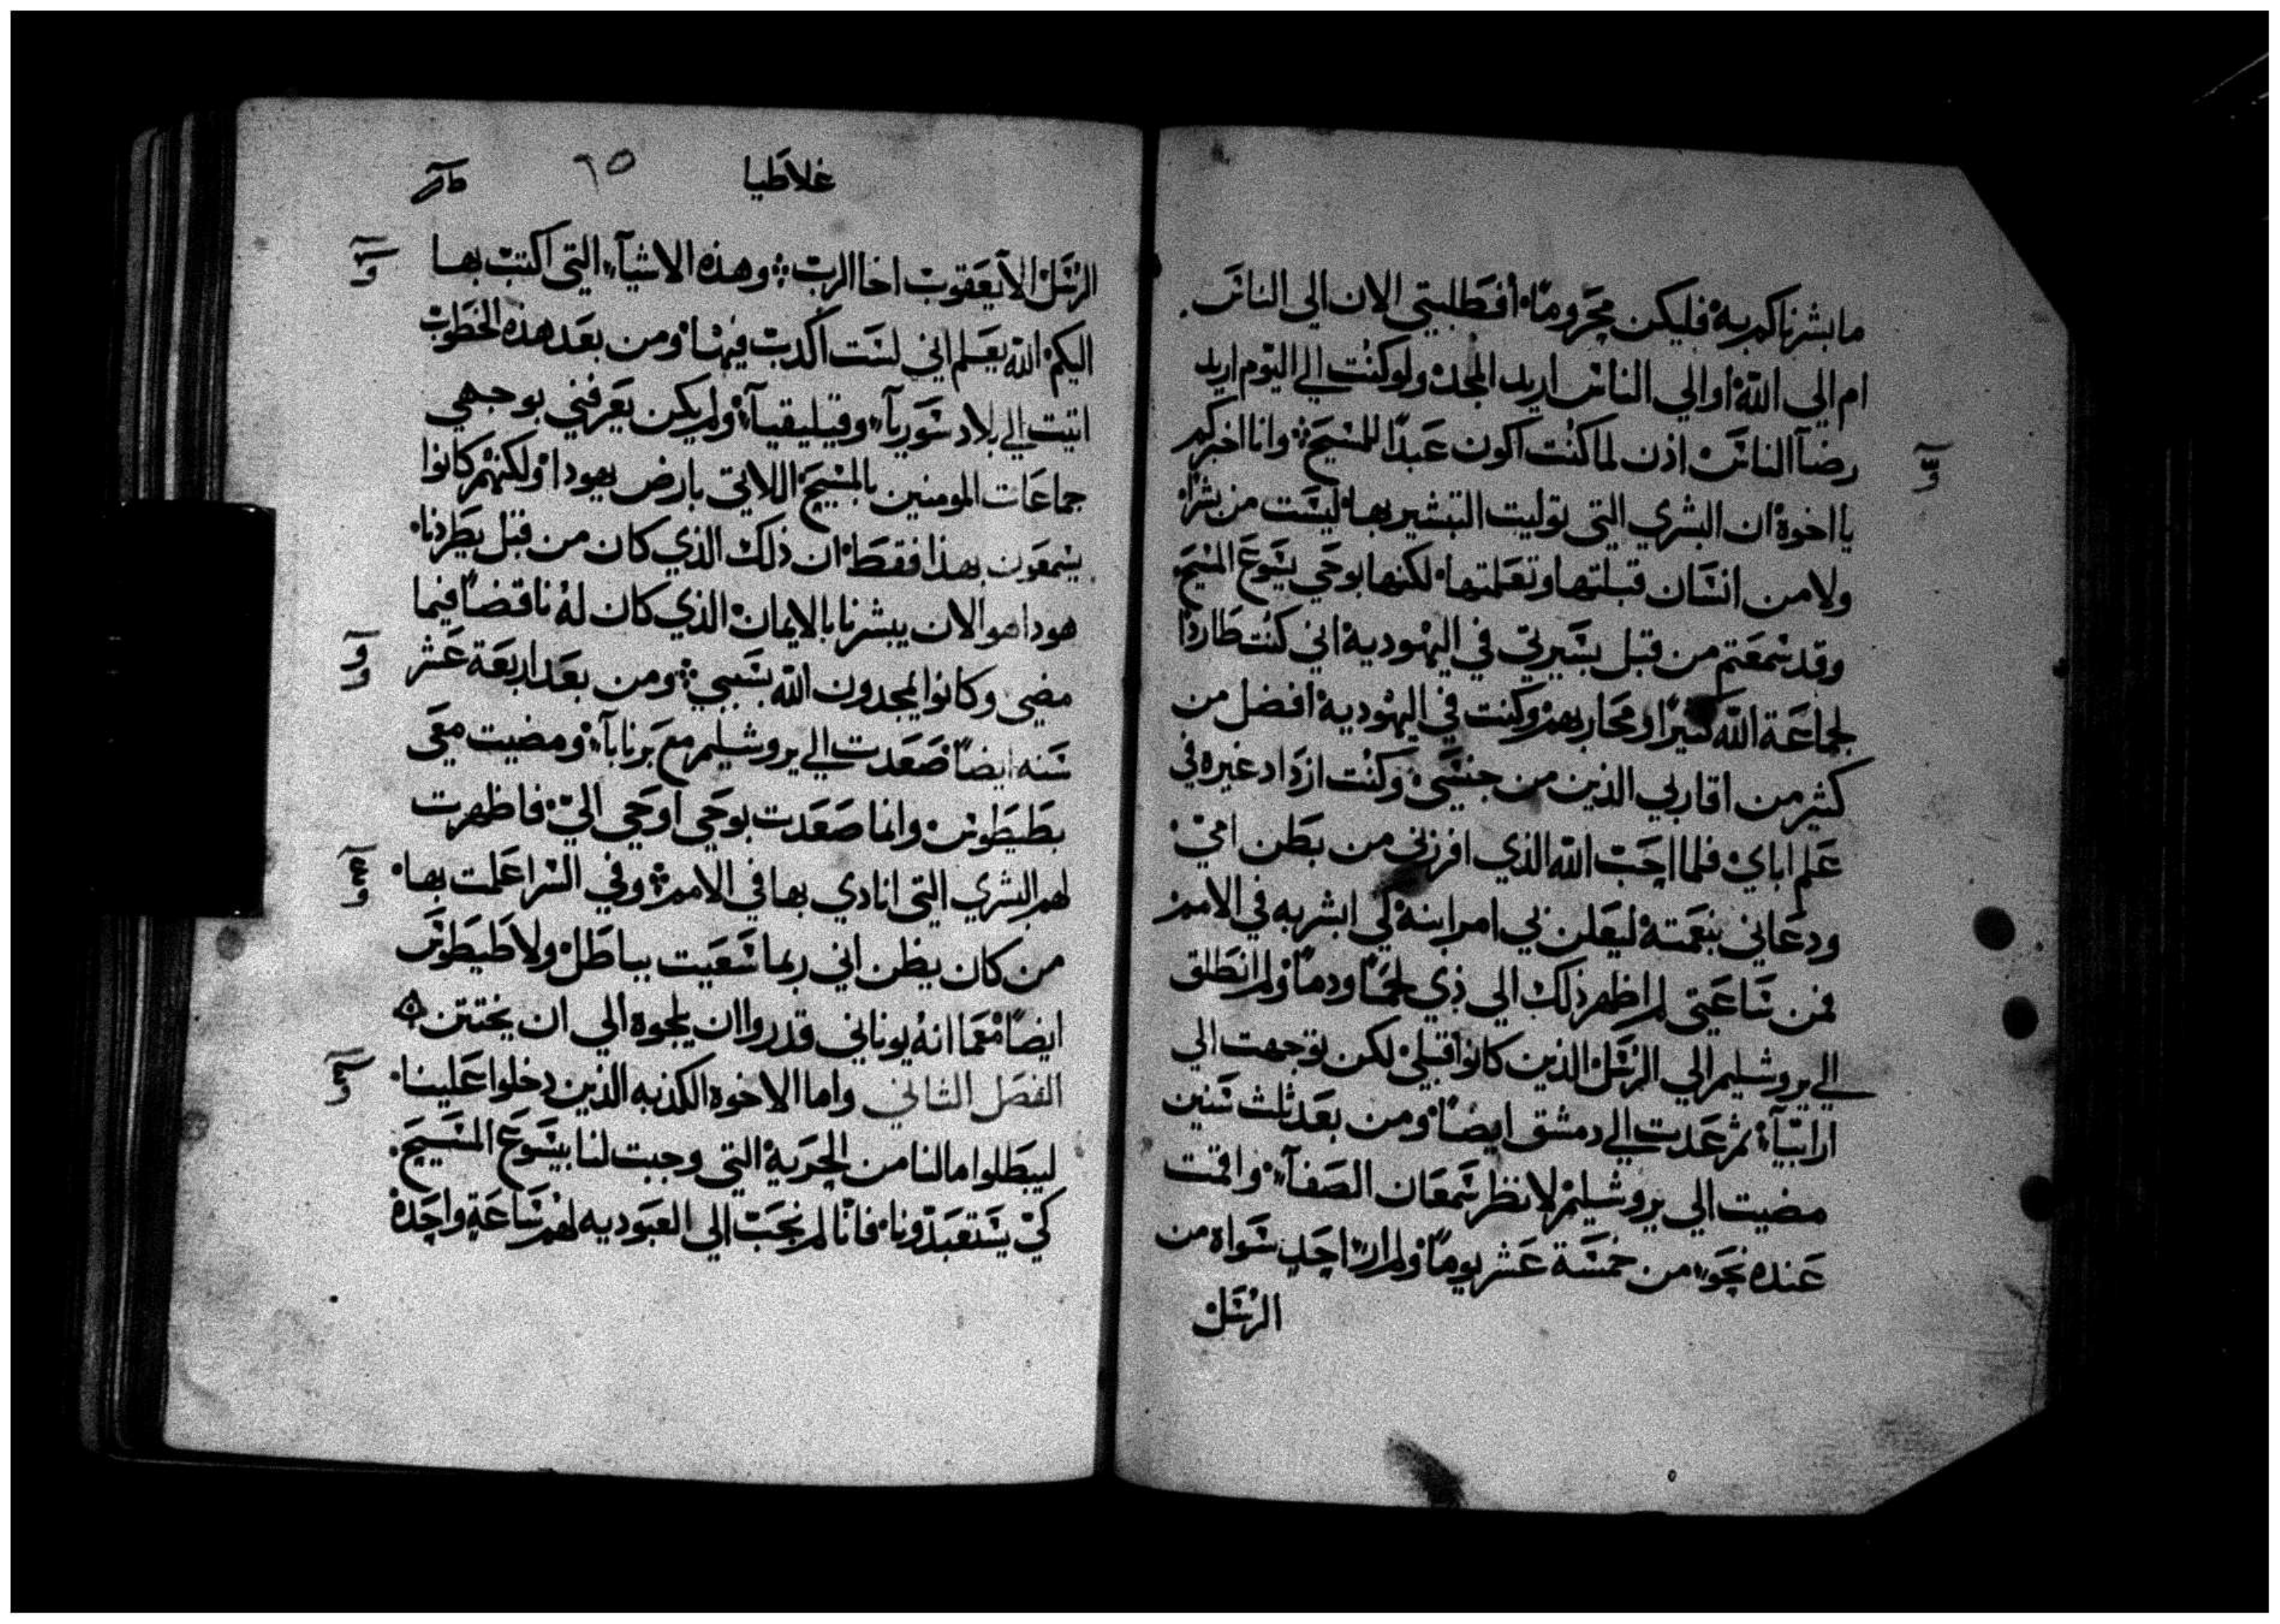 ما بشرناكم به فليكن محروما أفطلبتي الان الي الناس
ام الي الله أو الي الناس اريد المجد ولو كنت الي اليوم اريد
رضآ الناس اذن لما كنت اكون عبدًا للمسيح وانا اخبركم
يا اخوة ان البشري التي توليت التبشير بها ليست من بشر
ولا من انسان قبلتها وتعلمتها لكنها بوحي يسوع المسيح
وقد سمعتم من قبل بسيرتي في اليهودية اني كنت طاردًا
لجماعة الله كثيرًا ومحاربهم وكنت في اليهودية افضل من
كثير من اقاربي الذين من جنسي وكنت ازداد غيره في
علم اباي فلما احب الله الذي افرزني من بطن امي
ودعاني بنعمته ليعلن بي امر ابنه كي ابشر به في الامم
فمن ساعتي لم اظهر ذلك الي ذي لحمًا ودمًا ولم انطلق
الي يروشليم الي الرسل الذين كانوا قبلي لكن توجهت الي
ارابيآ ثم عدت الي دمشق ايضًا ومن بعد ثلث سنين
مضيت الي يروشليم لانظر سمعان الصفآ واقمت
عنده نحو من خمسة عشر يومًا ولم ار احد سواه من
الرسل
غلاطيا ٦٥
الرسل الا يعقوب اخا الرب وهذه الاشيآ التي اكتب بها
اليكم الله يعلم اني لست اكدب فيها ومن بعد هذه الخطوب
اتيت الي بلاد سوريآ وقيليقيآ ولم يكن يعرفني بوجهي
جماعات المومنين بالمسيح اللاتي بارض يهودا ولكنهم كانوا
يسمعون بهذا فقط ان ذلك الذي كان من قبل يطردنا
هوداهو الان يبشرنا بالايمان الذي كان له ناقضًا فيما
مضي وكانوا يمجدون الله بسببي ومن بعد اربعة عشر
سنه ايضًا صعدت الي يروشليم مع برنابآ ومضيت معي
بطيطوس وانما صعدت بوحي اوحي الي فاظهرت
لهم البشري التي انادي بها في الامم وفي السر اعلمت بها
من كان يظن اني ربما سعيت بباطل ولا طيطوس
ايضًا معما انه يوناني قدروا ان يلجوه الي ان يختتن
الفصل الثاني واما الاخوه الكذبه الذين دخلوا علينا
ليبطلوا مالنا من الحرية التي وجبت لنا بيسوع المسيح
كي يستعبدونا فانا لم نجب الي العبوديه لهم ساعة واحدة